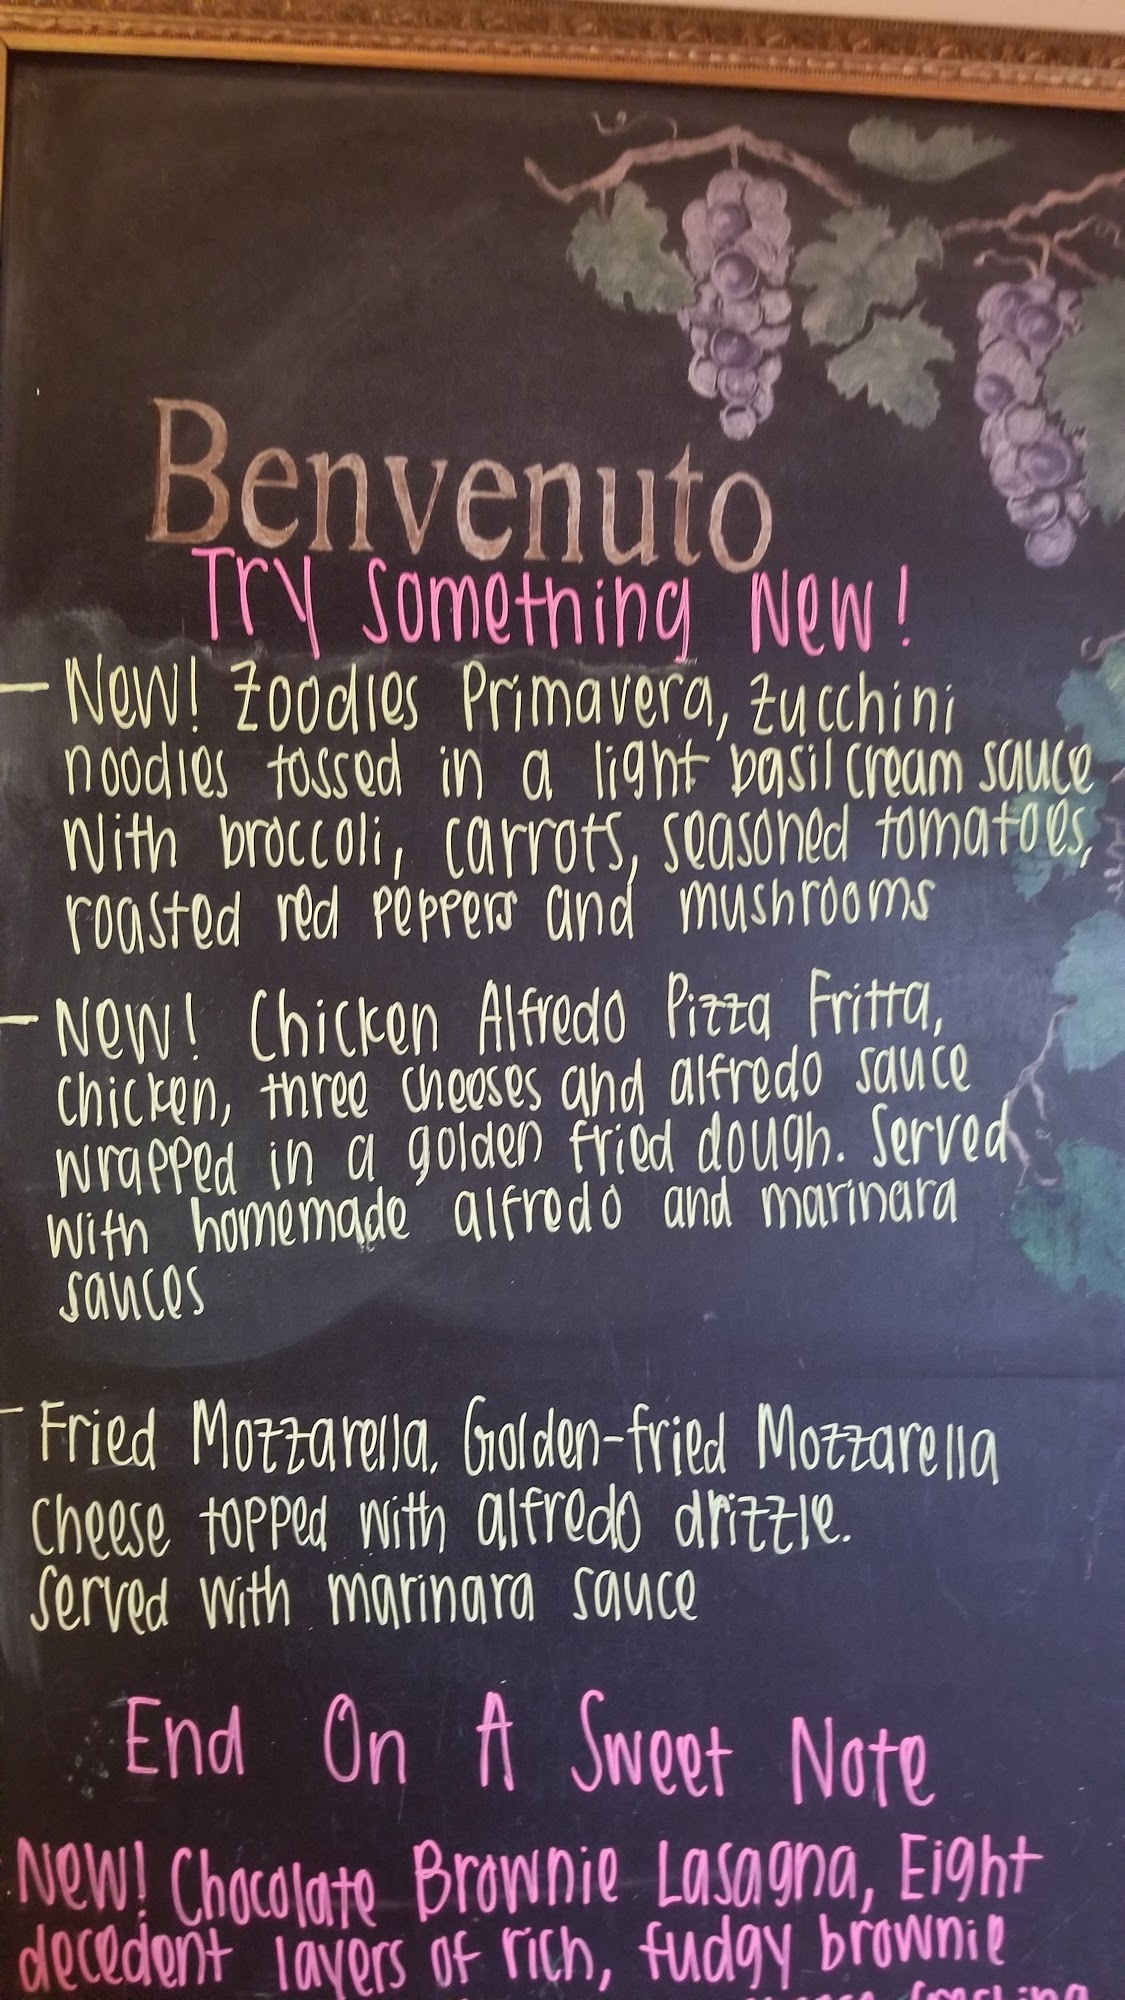 Benvenuto
Try Something New!
- New! Zoodles Primavera, zucchini
noodles tossed in a light basil cream sauce
With broccoli, carrots, seasoned tomatoes,
roasted red peppers and mushrooms
- New! Chicken Alfredo Pizza Fritta,
chicken, three cheeses and alfredo sauce
wrapped in a golden fried dough. Served
with homemade alfredo and marinara
sauces
- Fried Mozzarella. Golden-fried Mozzarella
cheese topped with alfredo drizzle.
Served with marinara sauce
End On A Sweet Note
New! Chocolate Brownie Lasagna, Eight
decedent layers of rich, fudgy brownie